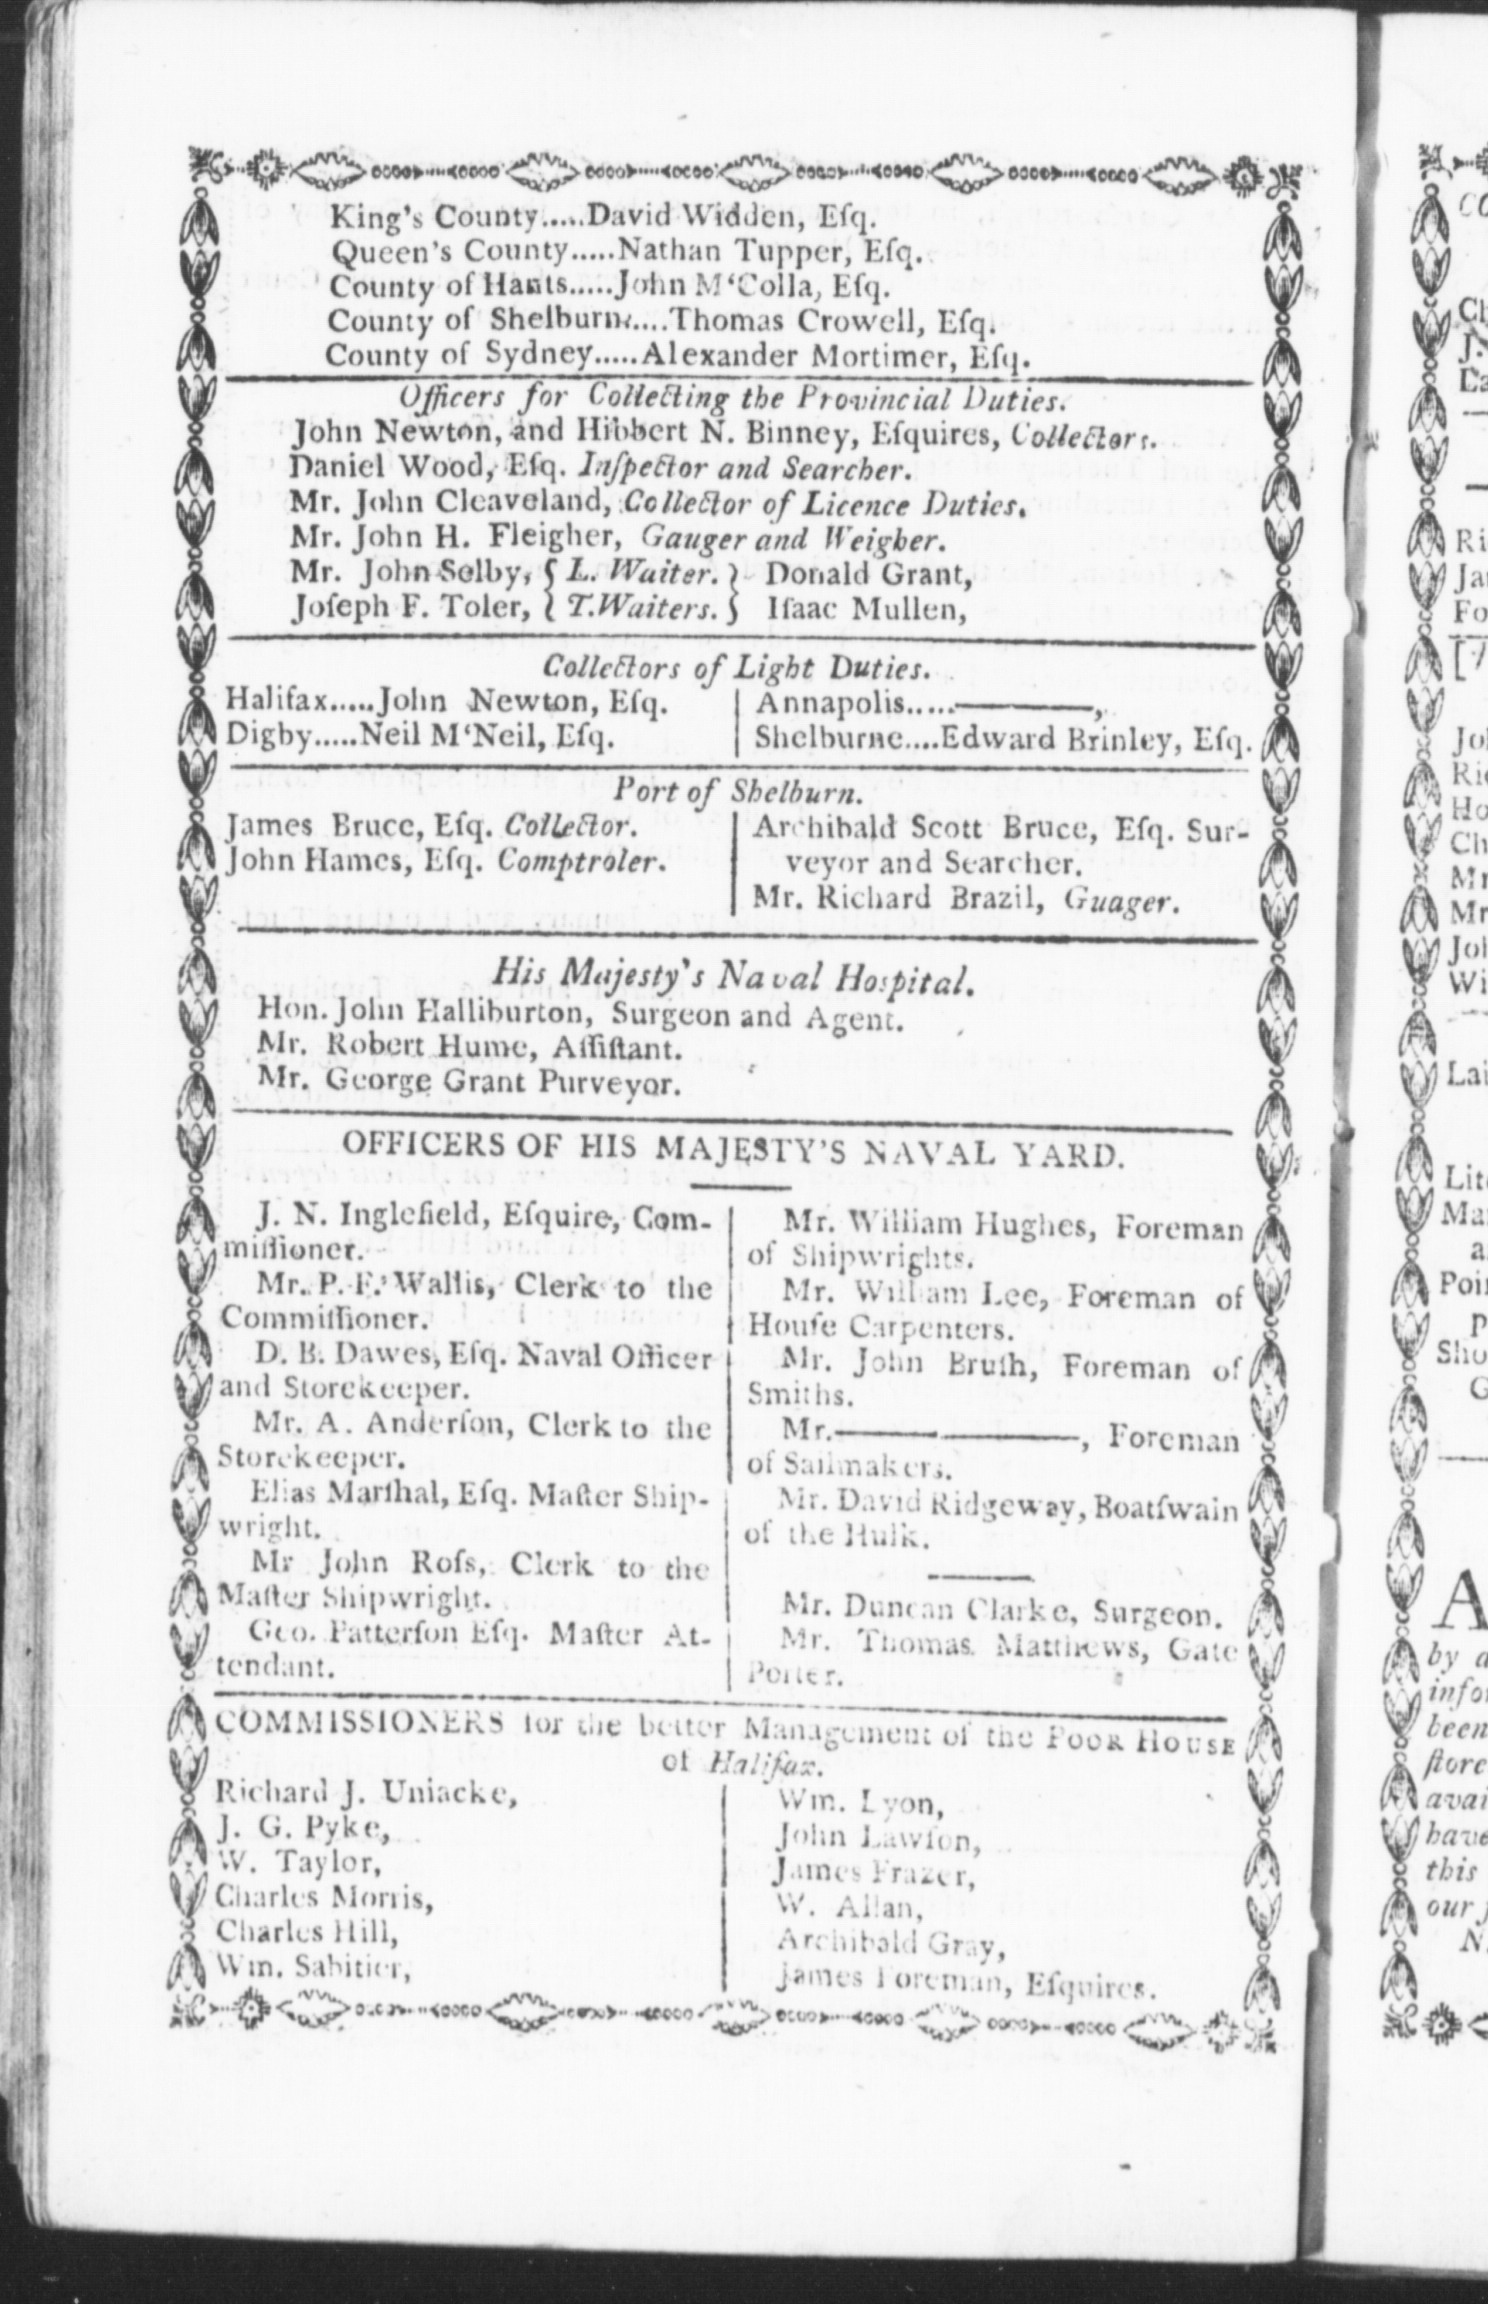 King's County.....David Widden, Eſq.
Queen's County.....Nathan Tupper, Eſq.
County of Hants.....John M‘Colla, Eſq.
County of Shelburne....Thomas Crowell, Eſq.
County of Sydney.....Alexander Mortimer, Eſq.
Officers for Collecting the Provincial Duties.
John Newton, and Hibbert N. Binney, Eſquires, Collectors.
Daniel Wood, Eſq. Inſpector and Searcher.
Mr. John Cleaveland, Collector of Licence Duties.
Mr. John H. Fleigher, Gauger and Weigher.
Mr. John Selby, { L. Waiter. } Donald Grant,
Joſeph F. Toler, { T. Waiters. } Iſaac Mullen,
Collectors of Light Duties.
Halifax.....John Newton, Eſq.
Digby.....Neil M‘Neil, Eſq.
Annapolis.....————,
Shelburne....Edward Brinley, Eſq.
Port of Shelburn.
James Bruce, Eſq. Collector.
John Hames, Eſq. Comptroler.
Archibald Scott Bruce, Eſq. Sur-
veyor and Searcher.
Mr. Richard Brazil, Guager.
His Majesty's Naval Hospital.
Hon. John Halliburton, Surgeon and Agent.
Mr. Robert Hume, Aſſiſtant.
Mr. George Grant Purveyor.
OFFICERS OF HIS MAJESTY'S NAVAL YARD.
J. N. Inglefield, Eſquire, Com-
miſſioner.
Mr. P. F. Wallis, Clerk to the
Commiſſioner.
D. B. Dawes, Eſq. Naval Officer
and Storekeeper.
Mr. A. Anderſon, Clerk to the
Storekeeper.
Elias Marſhal, Eſq. Maſter Ship-
wright.
Mr John Roſs, Clerk to the
Maſter Shipwright.
Geo. Patterſon Eſq. Maſter At-
tendant.
Mr. William Hughes, Foreman
of Shipwrights.
Mr. William Lee, Foreman of
Houſe Carpenters.
Mr. John Bruſh, Foreman of
Smiths.
Mr.————————, Foreman
of Sailmakers.
Mr. David Ridgeway, Boatſwain
of the Hulk.
Mr. Duncan Clarke, Surgeon.
Mr. Thomas Matthews, Gate
Porter.
COMMISSIONERS for the better Management of the POOR HOUSE
of Halifax.
Richard J. Uniacke,
J. G. Pyke,
W. Taylor,
Charles Morris,
Charles Hill,
Wm. Sabitier,
Wm. Lyon,
John Lawſon,
James Frazer,
W. Allan,
Archibald Gray,
James Foreman, Eſquires.